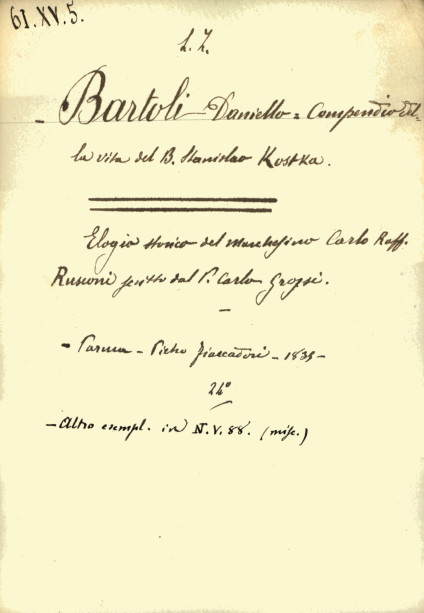 61.XV.5.
L.Z.
- Bartoli Daniello = Compendio del-
la vita del B. Stanislao Kostka.
Elogio storico del Marchesino Carlo Raff.
Rusconi scritto dal P. Carlo Grossi.
-
- Parma - Pietro Fiaccadori - 1835 -
24°
- Altro esempl. in N.V.88. (misc.)